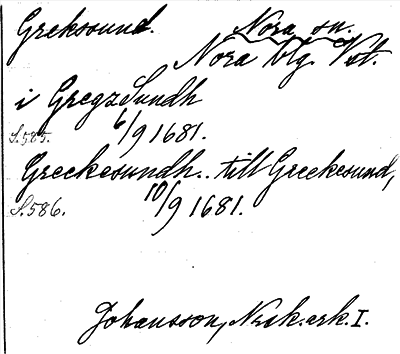 Greksund. Nora sn.
Nora blg. Vstm.
i GregzSundh
S.585. 6/9 1681.
Greckesundh.. till Greckesund,
S.586. 10/9 1681.
Johansson, Norask.ark. I.